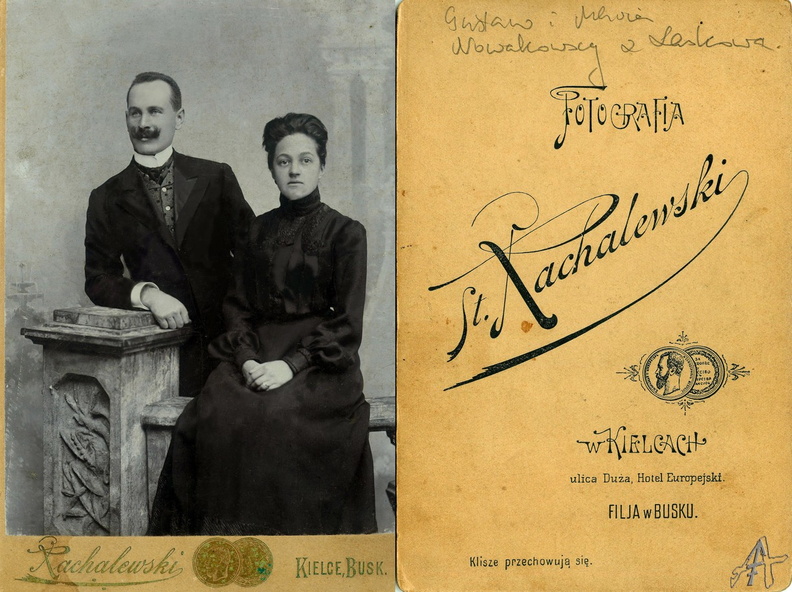 Rachalewski
KIELCE, BUSK.
Gustaw i Maria
Nowakowscy z Laskowa.
FOTOGRAFIA
St. Rachalewski
w KIELCACH
ulica Duża, Hotel Europejski.
FILJA w BUSKU.
Klisze przechowują się.